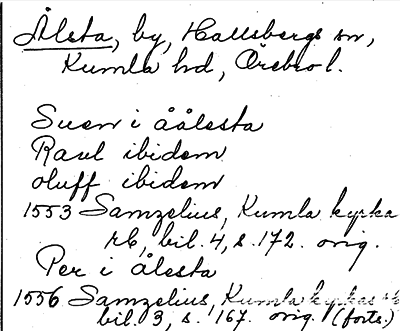 Ålsta, by, Hallsbergs sn,
Kumla hd, Örebro l.
Suen i åålesta
Raul ibidem
oluff ibidem
1553 Samzelius, Kumla kyrka
rb, bil. 4, s. 172. orig.
Per i ålesta
1556 Samzelius, Kumla kyrkas
bil. 3, s. 167. orig. (forts.)